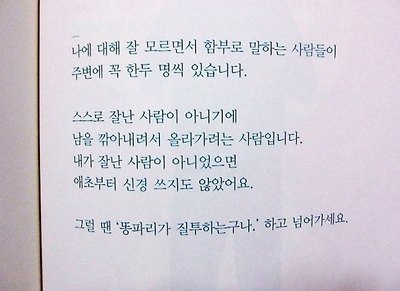 나에 대해 잘 모르면서 함부로 말하는 사람들이
주변에 꼭 한두 명씩 있습니다.
스스로 잘난 사람이 아니기에
남을 깎아내려서 올라가려는 사람입니다.
내가 잘난 사람이 아니었으면
애초부터 신경 쓰지도 않았어요.
그럴 땐 '똥파리가 질투하는구나.' 하고 넘어가세요.